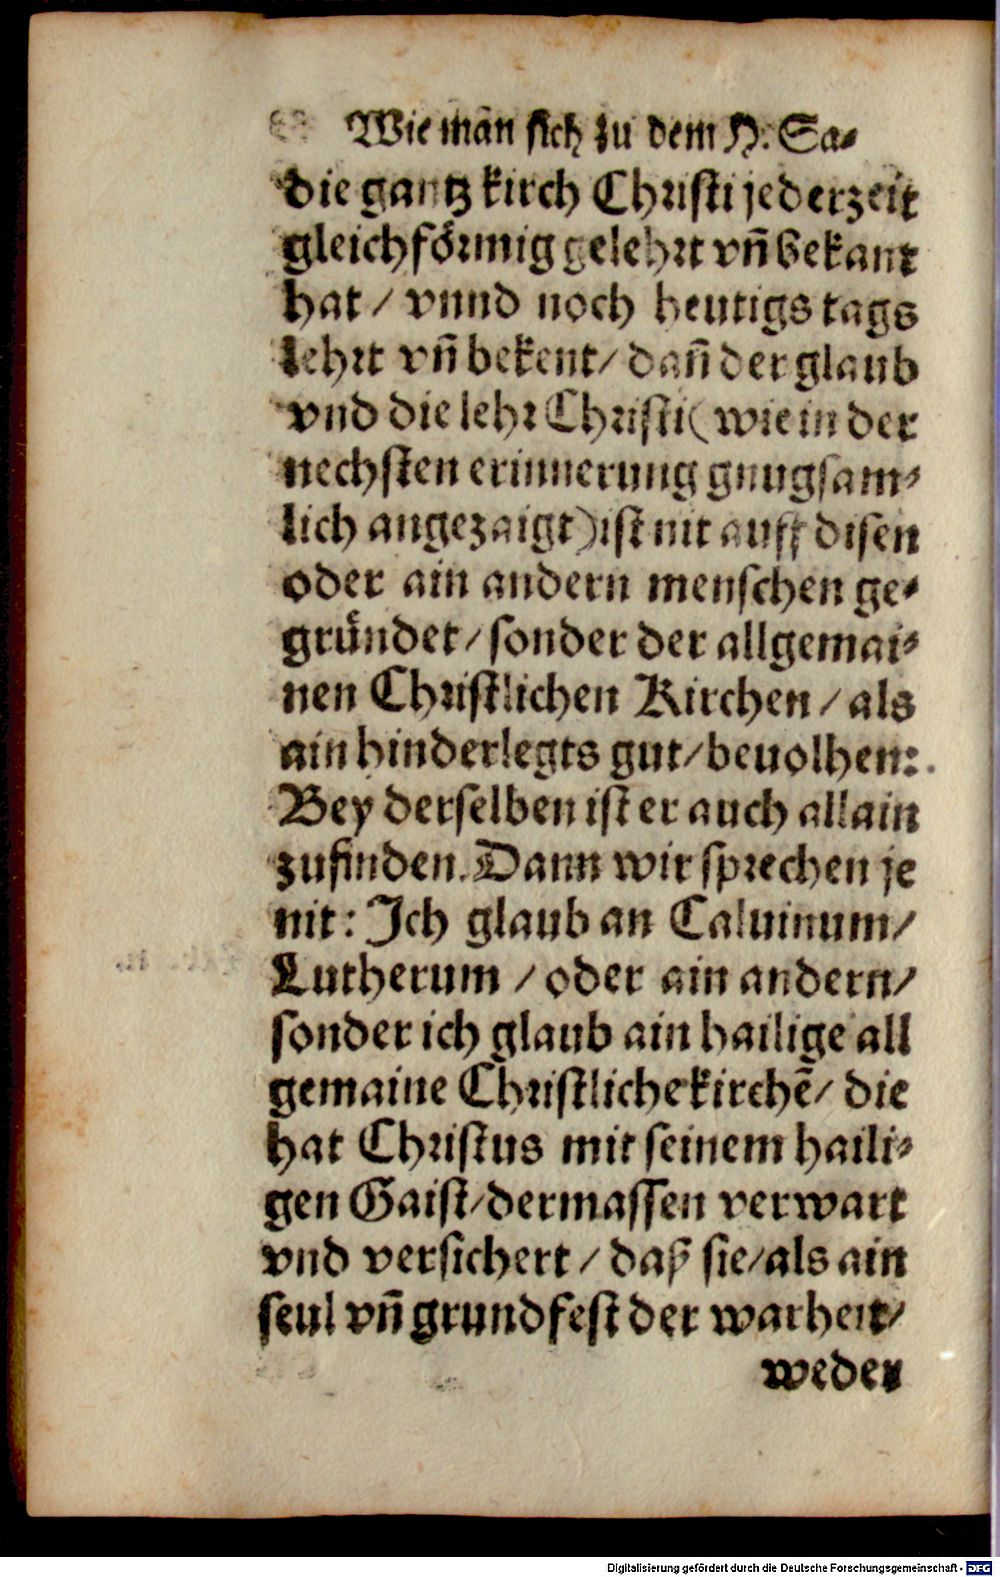 Wie man sich zu dem H. Sa-
die gantz kirch Christi jederzeit
gleichförmig gelehrt vñ bekant
hat / vnnd noch heutigs tags
lehrt vñ bekent / dañ der glaub
vnd die lehr Christi ( wie in der
nechsten erinnerung gnugsam-
lich angezaigt ) ist nit auff disen
oder ain andern menschen ge-
gründet / sonder der allgemai-
nen Christlichen Kirchen / als
ain hinderlegts gut / beuolhen:
Bey derselben ist er auch allain
zufinden. Dann wir sprechen je
nit: Jch glaub an Caluinum /
Lutherum / oder ain andern /
sonder ich glaub ain hailige all
gemaine Christliche kirchē / die
hat Christus mit seinem haili-
gen Gaist / dermassen verwart
vnd versichert / daß sie / als ain
seul vñ grundfest der warheit /
weder
Digitalisierung gefördert durch die Deutsche Forschungsgemeinschaft - DFG